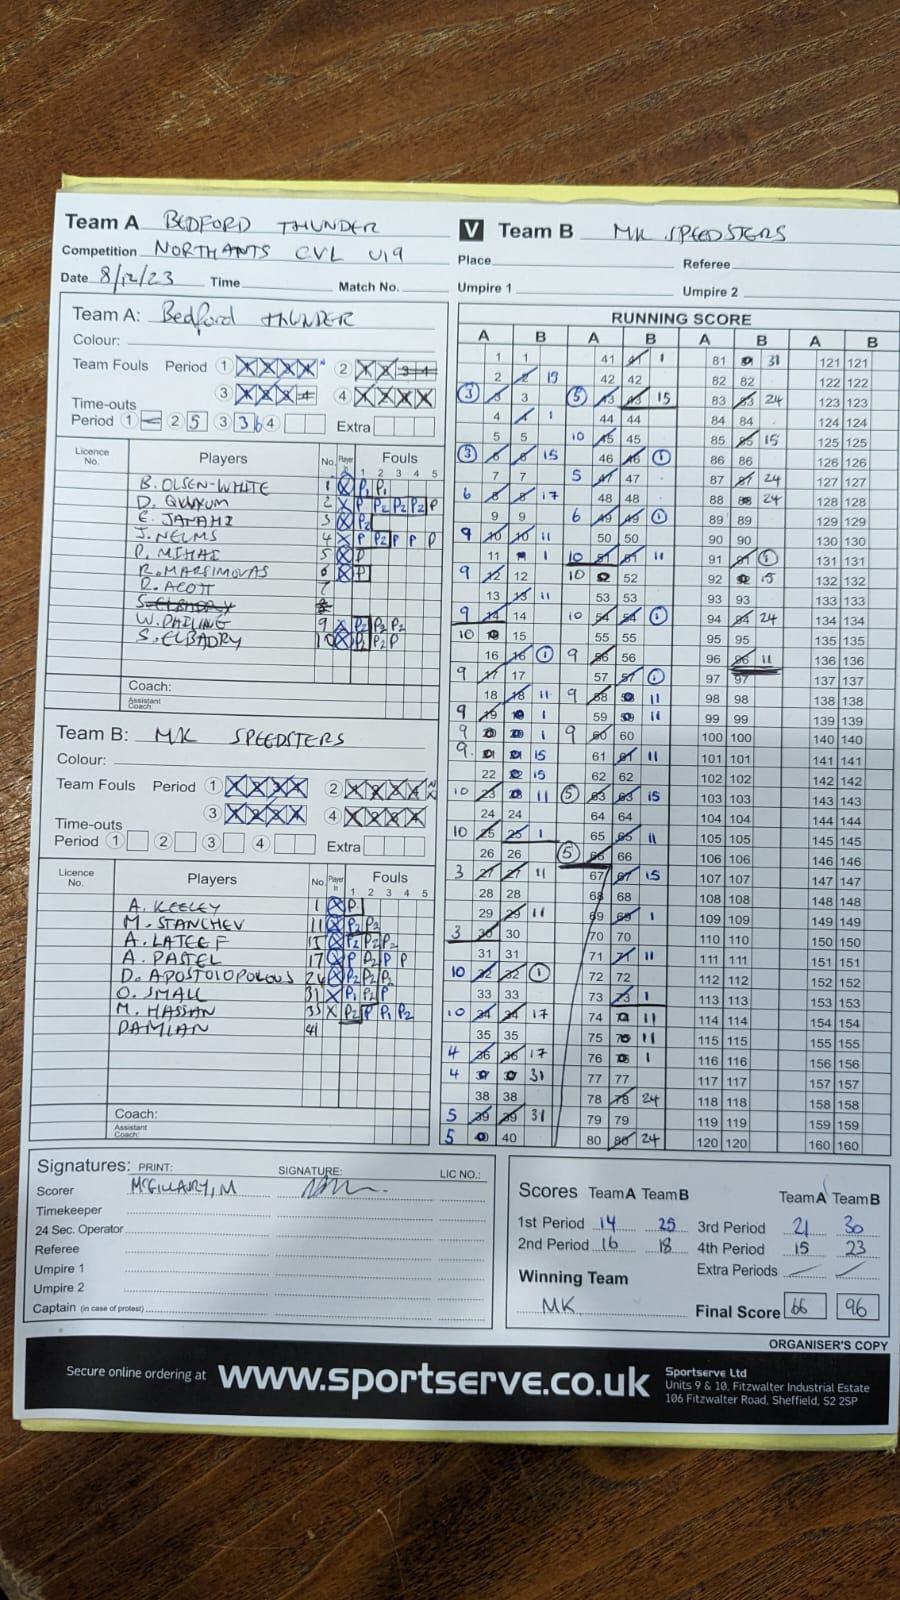 Team A BEDFORD THUNDER V Team B MK SPEEDSTERS
Competition NORTHANTS CVL U19 Place Referee
Date 8/12/23 Time Match No. Umpire 1 Umpire 2
Team A: Bedford THUNDER
Colour:
Team Fouls Period 1 2
3 4
Time-outs
Period 1 2 5 3 36 4 Extra
Licence No. Players No. Player In Fouls
1 2 3 4 5
B. OLSEN-WHITE 1 P2 P1
2 P P2 P2 P2 P
E. JANAHI 3 P2
J. NELMS 4 P P2 P P P
P. MIHAI 5 P
R. MARSIMOVAS 6 P
R. ACOTT 7
S. ELBADRY 8
W. PAILING 9 P2 P2 P2
S. ELBADRY 10 P2 P2 P
Coach:
Assistant Coach:
Team B: MK SPEEDSTERS
Colour:
Team Fouls Period 1 2
3 4
Time-outs
Period 1 2 3 4 Extra
Licence No. Players No. Player In Fouls
1 2 3 4 5
A. KEELEY 1 P
M. STANCHEV 11 P2 P2
A. LATEEF 15 P2 P2 P2
A. PASTEL 17 P P2 P P
D. APOSTOLOPOLOUS 24 P2 P2 P2
O. SMALL 31 P1 P2 P
M. HASSAN 35 P2 P P1 P2
DAMIAN 41
Coach:
Assistant Coach:
RUNNING SCORE
A B A B A B A B
1 1 41 41 1 81 81 31 121 121
2 2 15 42 42 82 82 122 122
3 3 3 5 43 43 15 83 83 24 123 123
4 4 1 44 44 84 84 124 124
5 5 10 45 45 85 85 15 125 125
3 6 6 15 46 46 1 86 86 126 126
7 7 5 47 47 87 87 24 127 127
6 8 8 17 48 48 88 88 24 128 128
9 9 6 49 49 1 89 89 129 129
9 10 10 11 50 50 90 90 130 130
11 11 1 10 51 51 11 91 91 1 131 131
9 12 12 10 52 52 92 92 15 132 132
13 13 11 53 53 93 93 133 133
9 14 14 10 54 54 1 94 94 24 134 134
10 15 15 55 55 95 95 135 135
16 16 1 9 56 56 96 96 11 136 136
9 17 17 57 57 1 97 97 137 137
18 18 11 9 58 58 11 98 98 138 138
9 19 19 1 59 59 11 99 99 139 139
9 20 20 1 9 60 60 100 100 140 140
9 21 21 15 61 61 11 101 101 141 141
22 22 15 62 62 102 102 142 142
10 23 23 11 5 63 63 15 103 103 143 143
24 24 64 64 104 104 144 144
10 25 25 1 65 65 11 105 105 145 145
26 26 5 66 66 106 106 146 146
3 27 27 11 67 67 15 107 107 147 147
28 28 68 68 108 108 148 148
29 29 11 69 69 1 109 109 149 149
3 30 30 70 70 110 110 150 150
31 31 71 71 11 111 111 151 151
10 32 32 1 72 72 112 112 152 152
33 33 73 73 1 113 113 153 153
10 34 34 17 74 74 11 114 114 154 154
35 35 75 75 11 115 115 155 155
4 36 36 17 76 76 1 116 116 156 156
4 37 37 31 77 77 117 117 157 157
38 38 78 78 24 118 118 158 158
5 39 39 31 79 79 119 119 159 159
5 40 40 80 80 24 120 120 160 160
Signatures: PRINT: SIGNATURE: LIC NO.:
Scorer McGILLARY, M
Timekeeper
24 Sec. Operator
Referee
Umpire 1
Umpire 2
Captain (in case of protest)
Scores Team A Team B Team A Team B
1st Period 14 25 3rd Period 21 30
2nd Period 16 18 4th Period 15 23
Extra Periods
Winning Team
MK Final Score 66 96
ORGANISER'S COPY
Secure online ordering at www.sportserve.co.uk
Sportserve Ltd
Units 9 & 10, Fitzwalter Industrial Estate
106 Fitzwalter Road, Sheffield, S2 2SP